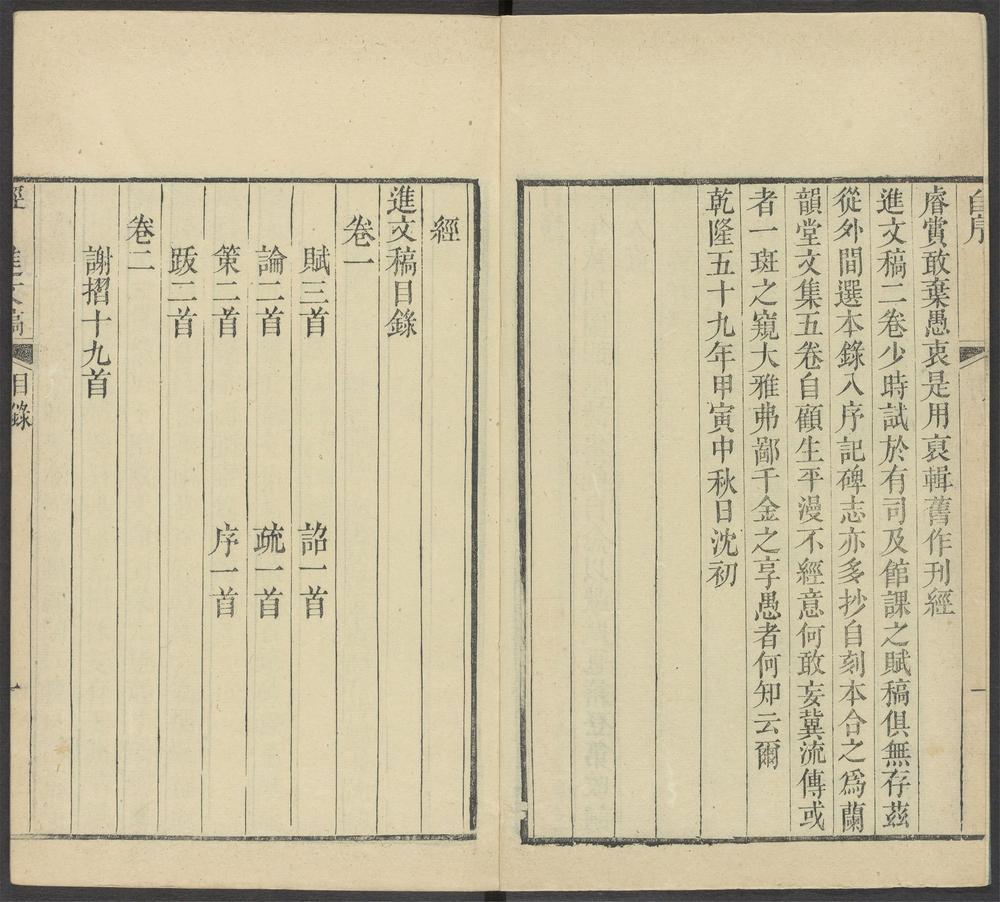 自序
一
睿賞敢棄愚衷是用裒輯舊作刊經
進文稿二卷少時試於有司及館課之賦稿俱無存茲
從外間選本錄入序記碑志亦多抄自刻本合之爲蘭
韻堂文集五卷自顧生平漫不經意何敢妄冀流傳或
者一斑之窺大雅弗鄙千金之享愚者何知云爾
乾隆五十九年甲寅中秋日沈初
經
進文稿目錄
卷一
賦三首 詔一首
論二首 疏一首
策二首 序一首
跋二首
卷二
謝摺十九首
經 進文稿 目錄 一